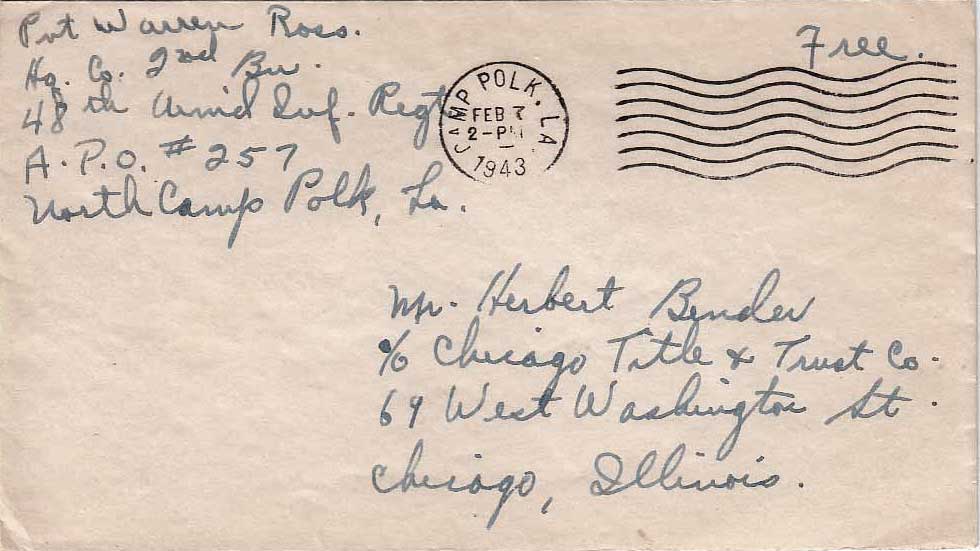 Pvt Warren Ross.
Hq. Co. 2nd Bn.
48th Armd Inf. Regt
A.P.O. #257
North Camp Polk, La.
Free.
CAMP POLK, LA.
FEB 7
2-PM
1943
Mr. Herbert Bender
c/o Chicago Title & Trust Co.
69 West Washington St.
Chicago, Illinois.